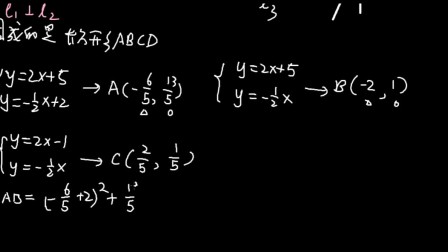 l₁⊥l₂
l₃
ABCD
y=2x+5
y=-½x+2 → A(-6/5, 13/5)
y=2x+5
y=-½x → B(-2, 1)
y=2x-1
y=-½x → C(2/5, 1/5)
AB=(-6/5+2)²+13/5